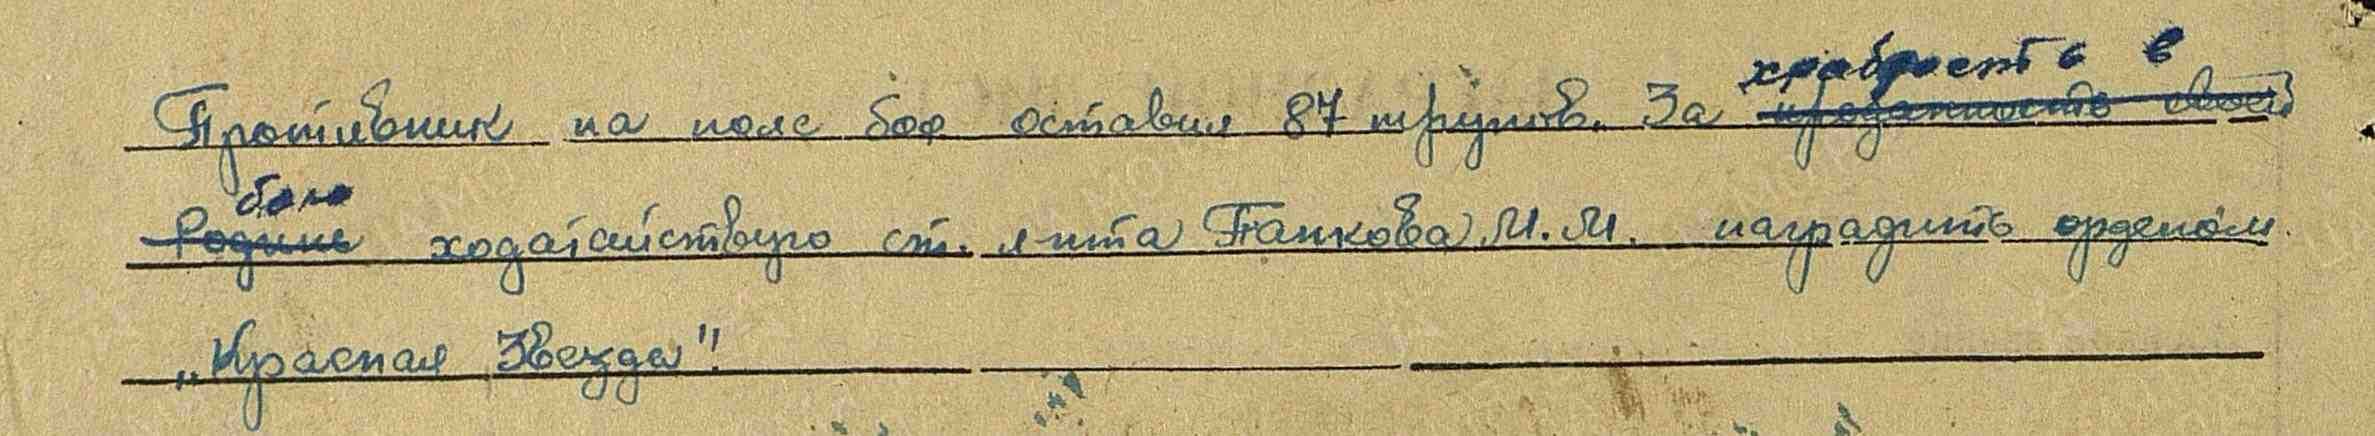 храбрость в
Противник на поле боя оставил 87 трупов. За преданность своей
бою
Родине ходатайствую ст. л-нта Панкова М.М. наградить орденом
„Красная Звезда".